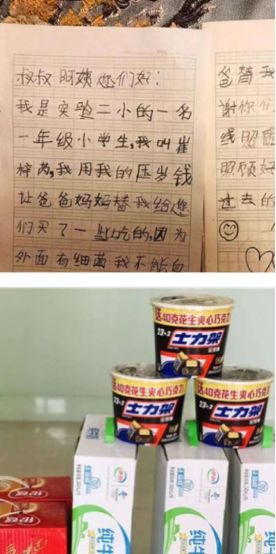 叔叔阿姨您们好：
我是实验二小的一名
一年级小学生,我叫崔
梓芮,我用我的压岁钱
让爸爸妈妈替我给您
们买了一些吃的,因为
外面有细菌我不能自
爸替我
谢你们
线照顾
照顾好
过去的
送40克花生夹心巧克力
士力架
送40克花生夹心巧克力
士力架
送40克花生夹心巧克力
士力架
伊利
纯牛
伊利
纯牛